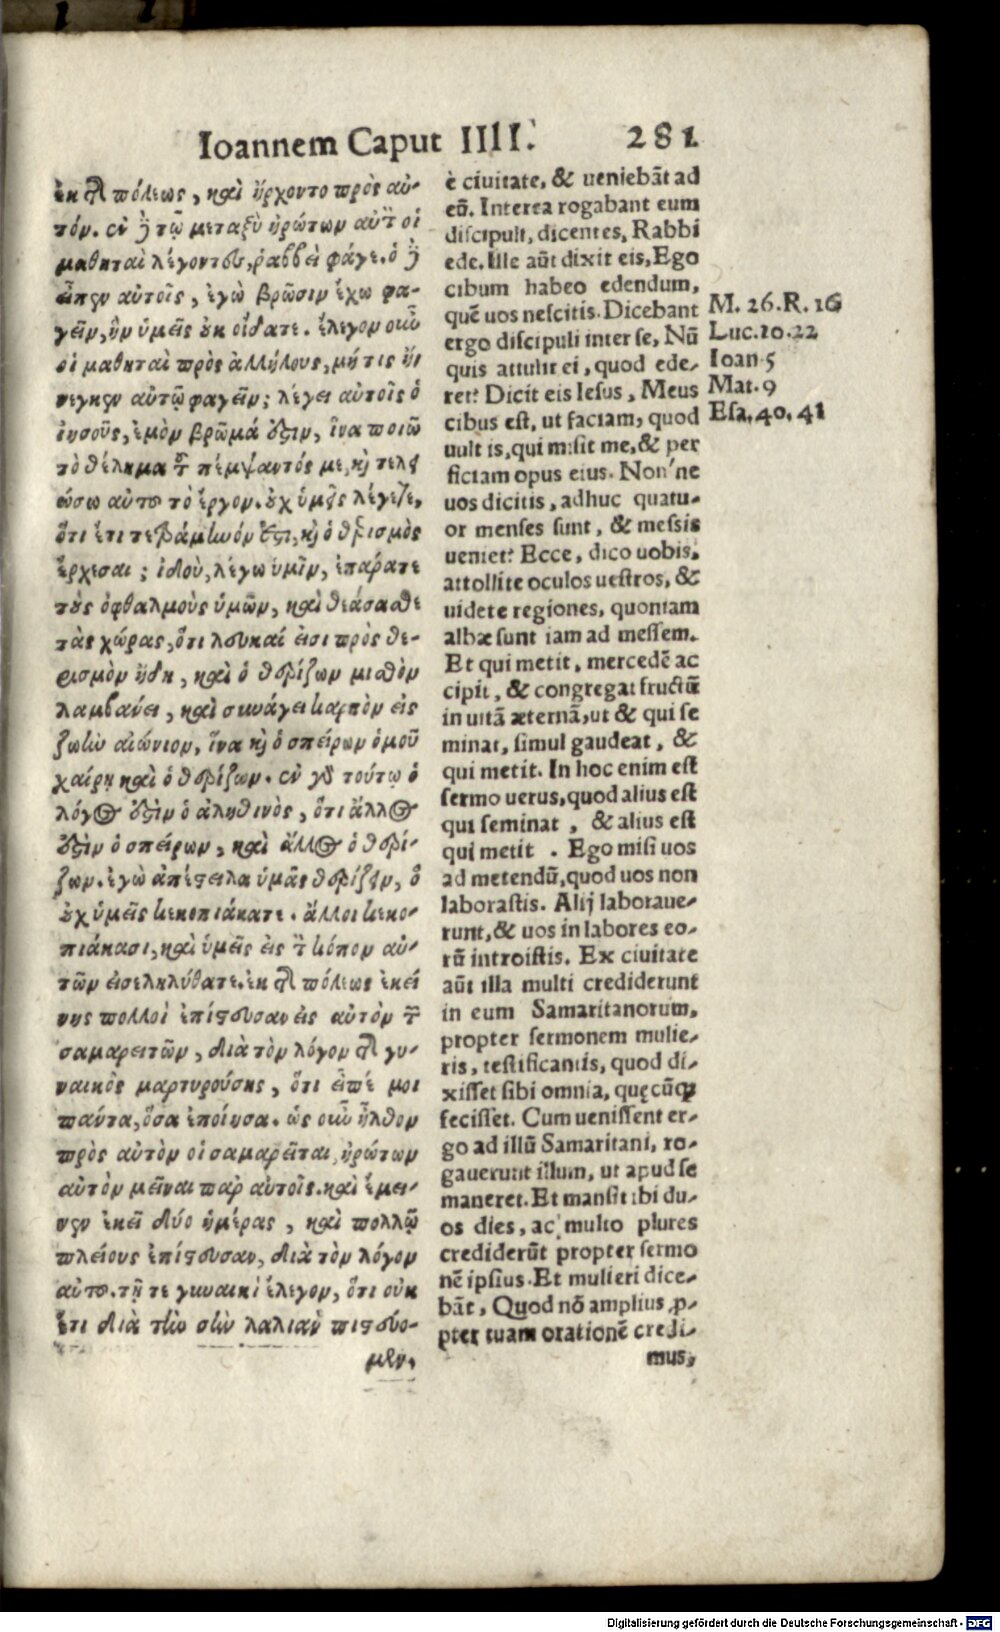 Ioannem Caput IIII. 281
ἐκ τῆς πόλεως, καὶ ἤρχοντο πρὸς αὐ-
τόν. ἐν δὲ τῷ μεταξὺ ἠρώτων αὐτὸν οἱ
μαθηταὶ λέγοντες, ῥαββεὶ φάγε. ὁ δὲ
εἶπεν αὐτοῖς, ἐγὼ βρῶσιν ἔχω φα-
γεῖν, ἣν ὑμεῖς οὐκ οἴδατε. ἔλεγον οὖν
οἱ μαθηταὶ πρὸς ἀλλήλους, μή τις ἤ-
νεγκεν αὐτῷ φαγεῖν; λέγει αὐτοῖς ὁ
ἰησοῦς, ἐμὸν βρῶμά ἐστιν, ἵνα ποιῶ
τὸ θέλημα τοῦ πέμψαντός με, καὶ τελει
ώσω αὐτοῦ τὸ ἔργον. οὐχ ὑμεῖς λέγετε,
ὅτι ἔτι τετράμηνόν ἐστι, καὶ ὁ θερισμὸς
ἔρχεται; ἰδοὺ, λέγω ὑμῖν, ἐπάρατε
τοὺς ὀφθαλμοὺς ὑμῶν, καὶ θεάσασθε
τὰς χώρας, ὅτι λευκαί εἰσι πρὸς θε-
ρισμὸν ἤδη, καὶ ὁ θερίζων μισθὸν
λαμβάνει, καὶ συνάγει καρπὸν εἰς
ζωὴν αἰώνιον, ἵνα καὶ ὁ σπείρων ὁμοῦ
χαίρῃ καὶ ὁ θερίζων. ἐν γὰρ τούτῳ ὁ
λόγος ἐστὶν ὁ ἀληθινὸς, ὅτι ἄλλος
ἐστὶν ὁ σπείρων, καὶ ἄλλος ὁ θερί-
ζων. ἐγὼ ἀπέστειλα ὑμᾶς θερίζειν, ὃ
οὐχ ὑμεῖς κεκοπιάκατε. ἄλλοι κεκο-
πιάκασι, καὶ ὑμεῖς εἰς τὸν κόπον αὐ-
τῶν εἰσεληλύθατε. ἐκ τῆς πόλεως ἐκεί
νης πολλοὶ ἐπίστευσαν εἰς αὐτὸν τῶν
σαμαρειτῶν, διὰ τὸν λόγον τῆς γυ-
ναικὸς μαρτυρούσης, ὅτι εἶπέ μοι
πάντα, ὅσα ἐποίησα. ὡς οὖν ἦλθον
πρὸς αὐτὸν οἱ σαμαρεῖται, ἠρώτων
αὐτὸν μεῖναι παρ αὐτοῖς. καὶ ἔμει-
νεν ἐκεῖ δύο ἡμέρας, καὶ πολλῷ
πλείους ἐπίστευσαν, διὰ τὸν λόγον
αὐτοῦ. τῇ τε γυναικὶ ἔλεγον, ὅτι οὐκ
ἔτι διὰ τὴν σὴν λαλιὰν πιστεύο-
μεν.
è ciuitate, & ueniebãt ad
eũ. Interea rogabant eum
discipuli, dicentes, Rabbi
ede. Ille aũt dixit eis, Ego
cibum habeo edendum,
quẽ uos nescitis. Dicebant
ergo discipuli inter se, Nũ
quis attulit ei, quod ede-
ret? Dicit eis Iesus, Meus
cibus est, ut faciam, quod
uult is, qui misit me, & per
ficiam opus eius. Non ne
uos dicitis, adhuc quatu-
or menses sunt, & messis
ueniet? Ecce, dico uobis,
attollite oculos uestros, &
uidete regiones, quoniam
albæ sunt iam ad messem.
Et qui metit, mercedẽ ac
cipit, & congregat fructũ
in uitã æternã, ut & qui se
minat, simul gaudeat, &
qui metit. In hoc enim est
sermo uerus, quod alius est
qui seminat, & alius est
qui metit. Ego misi uos
ad metendũ, quod uos non
laborastis. Alij laboraue-
runt, & uos in labores eo-
rũ introistis. Ex ciuitate
aũt illa multi crediderunt
in eum Samaritanorum,
propter sermonem mulie-
ris, testificantis, quod di-
xisset sibi omnia, quęcũꝗ
fecisset. Cum uenissent er-
go ad illũ Samaritani, ro-
gauerunt illum, ut apud se
maneret. Et mansit ibi du-
os dies, ac multo plures
crediderũt propter sermo
nẽ ipsius. Et mulieri dice-
bãt, Quod nõ amplius ꝓ-
pter tuam orationẽ credi-
mus,
M. 26. R. 16
Luc. 10. 22
Ioan. 5
Mat. 9
Esa. 40. 41
Digitalisierung gefördert durch die Deutsche Forschungsgemeinschaft - DFG